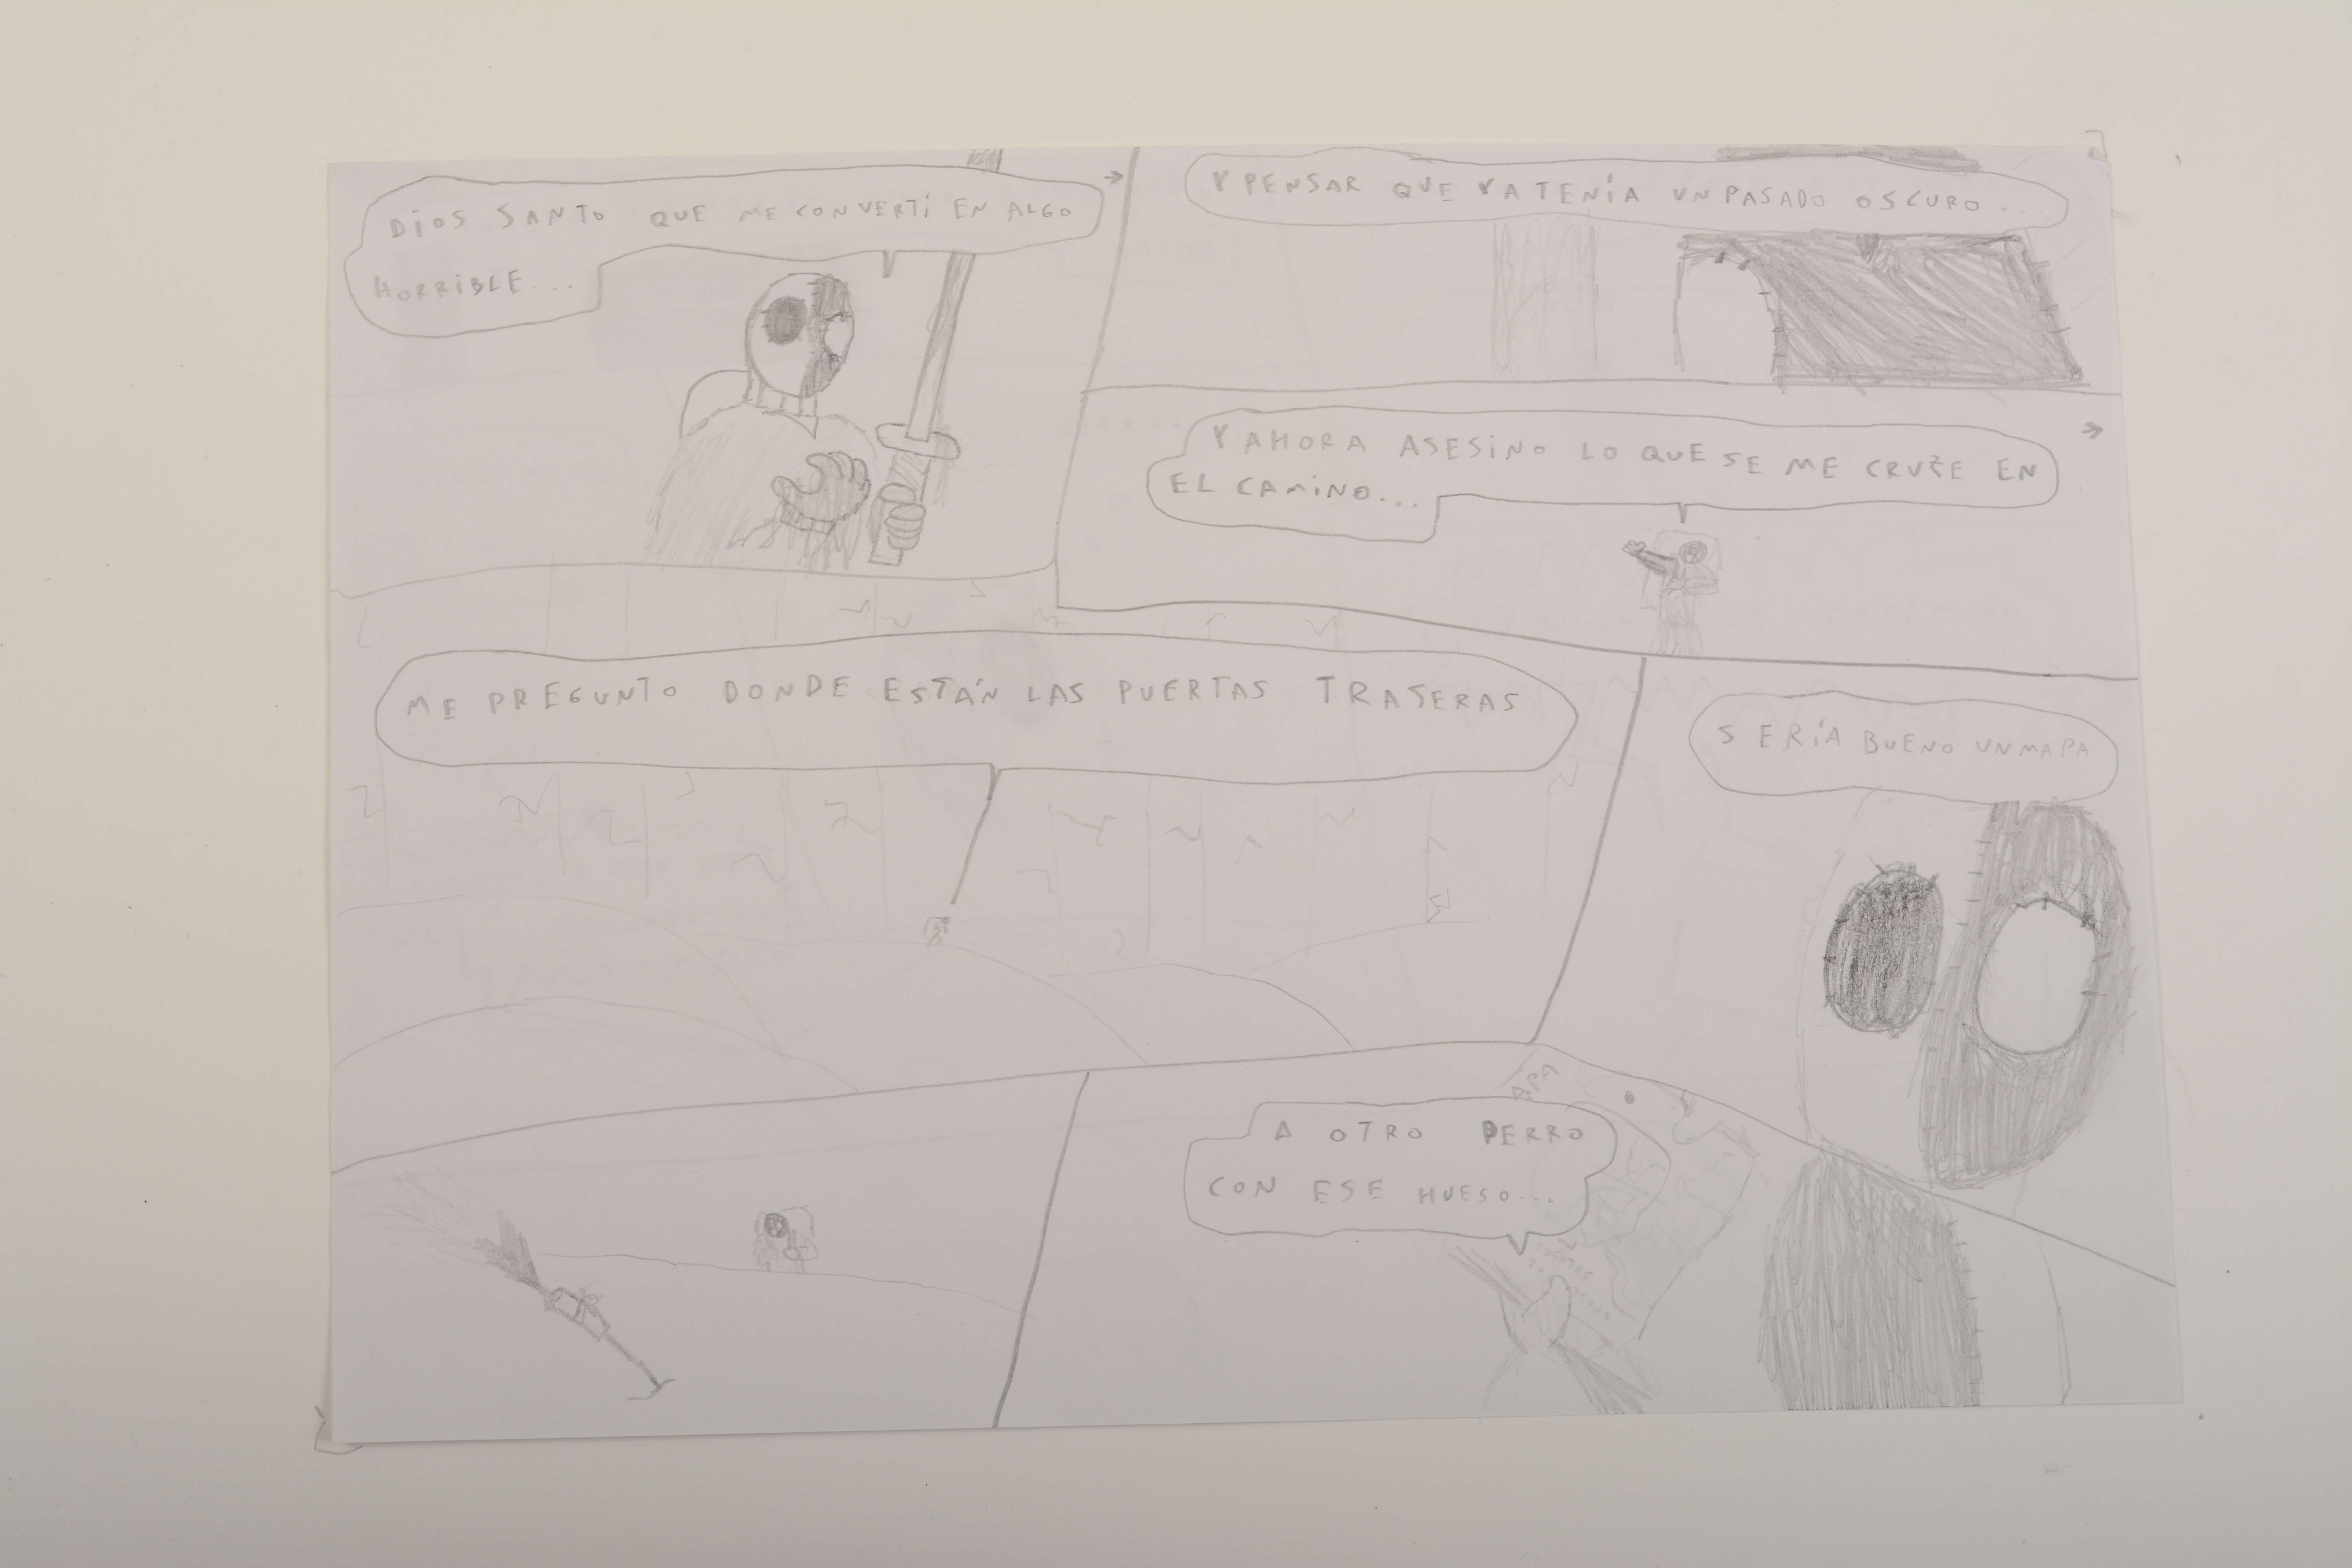 DIOS SANTO QUE ME CONVERTÍ EN ALGO
HORRIBLE...
Y PENSAR QUE YA TENÍA UN PASADO OSCURO...
Y AHORA ASESINO LO QUE SE ME CRUZE EN
EL CAMINO...
ME PREGUNTO DONDE ESTÁN LAS PUERTAS TRASERAS
SERÍA BUENO UN MAPA
APA
A OTRO PERRO
CON ESE HUESO...